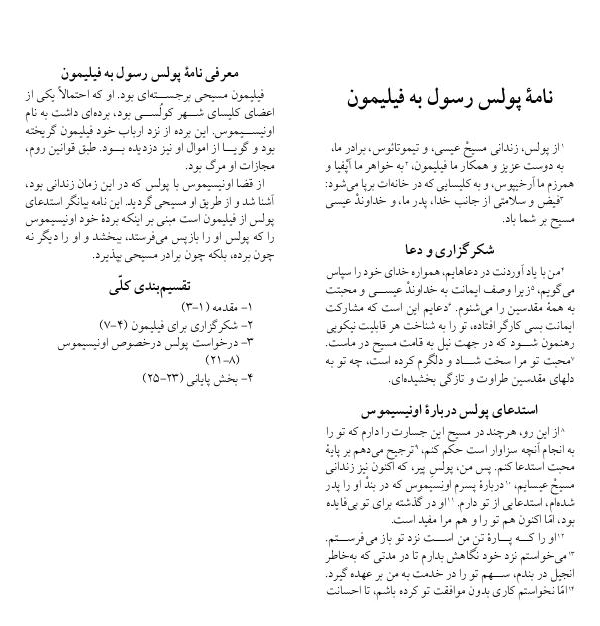 نامهٔ پولس رسول به فیلیمون
۱از پولس، زندانی مسیحْ عیسی، و تیموتائوس، برادر ما،
به دوست عزیز و همکار ما فیلیمون، ۲به خواهر ما آپْفیا و
همرزم ما آرخیپوس، و به کلیسایی که در خانه‌ات برپا می‌شود:
۳فیض و سلامتی از جانب خدا، پدر ما، و خداوندْ عیسی
مسیح بر شما باد.
شکرگزاری و دعا
۴من با یاد آوردنت در دعاهایم، همواره خدای خود را سپاس
می‌گویم، ۵زیرا وصف ایمانت به خداوندْ عیسی و محبتت
به همهٔ مقدسین را می‌شنوم. ۶دعایم این است که مشارکت
ایمانت بسی کارگر افتاده، تو را به شناخت هر قابلیت نیکویی
رهنمون شود که در جهت نیل به قامت مسیح در ماست.
۷محبت تو مرا سخت شاد و دلگرم کرده است، چه تو به
دلهای مقدسین طراوت و تازگی بخشیده‌ای.
استدعای پولس دربارهٔ اونیسیموس
۸از این رو، هرچند در مسیح این جسارت را دارم که تو را
به انجام آنچه سزاوار است حکم کنم، ۹ترجیح می‌دهم بر پایهٔ
محبت استدعا کنم. پس من، پولسِ پیر، که اکنون نیز زندانی
مسیحْ عیسایم، ۱۰دربارهٔ پسرم اونیسیموس که در بندْ او را پدر
شده‌ام، استدعایی از تو دارم. ۱۱او در گذشته برای تو بی‌فایده
بود، امّا اکنون هم تو را و هم مرا مفید است.
۱۲او را که پارهٔ تنِ من است نزد تو باز می‌فرستم.
۱۳می‌خواستم نزد خود نگاهش بدارم تا در مدتی که به‌خاطر
انجیل در بندم، سهم تو را در خدمت به من بر عهده گیرد.
۱۴امّا نخواستم کاری بدون موافقت تو کرده باشم، تا احسانت
معرفی نامهٔ پولس رسول به فیلیمون
فیلیمون مسیحی برجسته‌ای بود. او که احتمالاً یکی از
اعضای کلیسای شهر کولُسی بود، برده‌ای داشت به نام
اونیسیموس. این برده از نزد ارباب خود فیلیمون گریخته
بود و گویا از اموال او نیز دزدیده بود. طبق قوانین روم،
مجازات او مرگ بود.
از قضا اونیسیموس با پولس که در این زمان زندانی بود،
آشنا شد و از طریق او مسیحی گردید. این نامه بیانگر استدعای
پولس از فیلیمون است مبنی بر اینکه بردهٔ خود اونیسیموس
را که پولس او را بازپس می‌فرستد، ببخشد و او را دیگر نه
چون برده، بلکه چون برادر مسیحی بپذیرد.
تقسیم‌بندی کلّی
۱- مقدمه (۱-۳)
۲- شکرگزاری برای فیلیمون (۴-۷)
۳- درخواست پولس درخصوص اونیسیموس
(۸-۲۱)
۴- بخش پایانی (۲۳-۲۵)